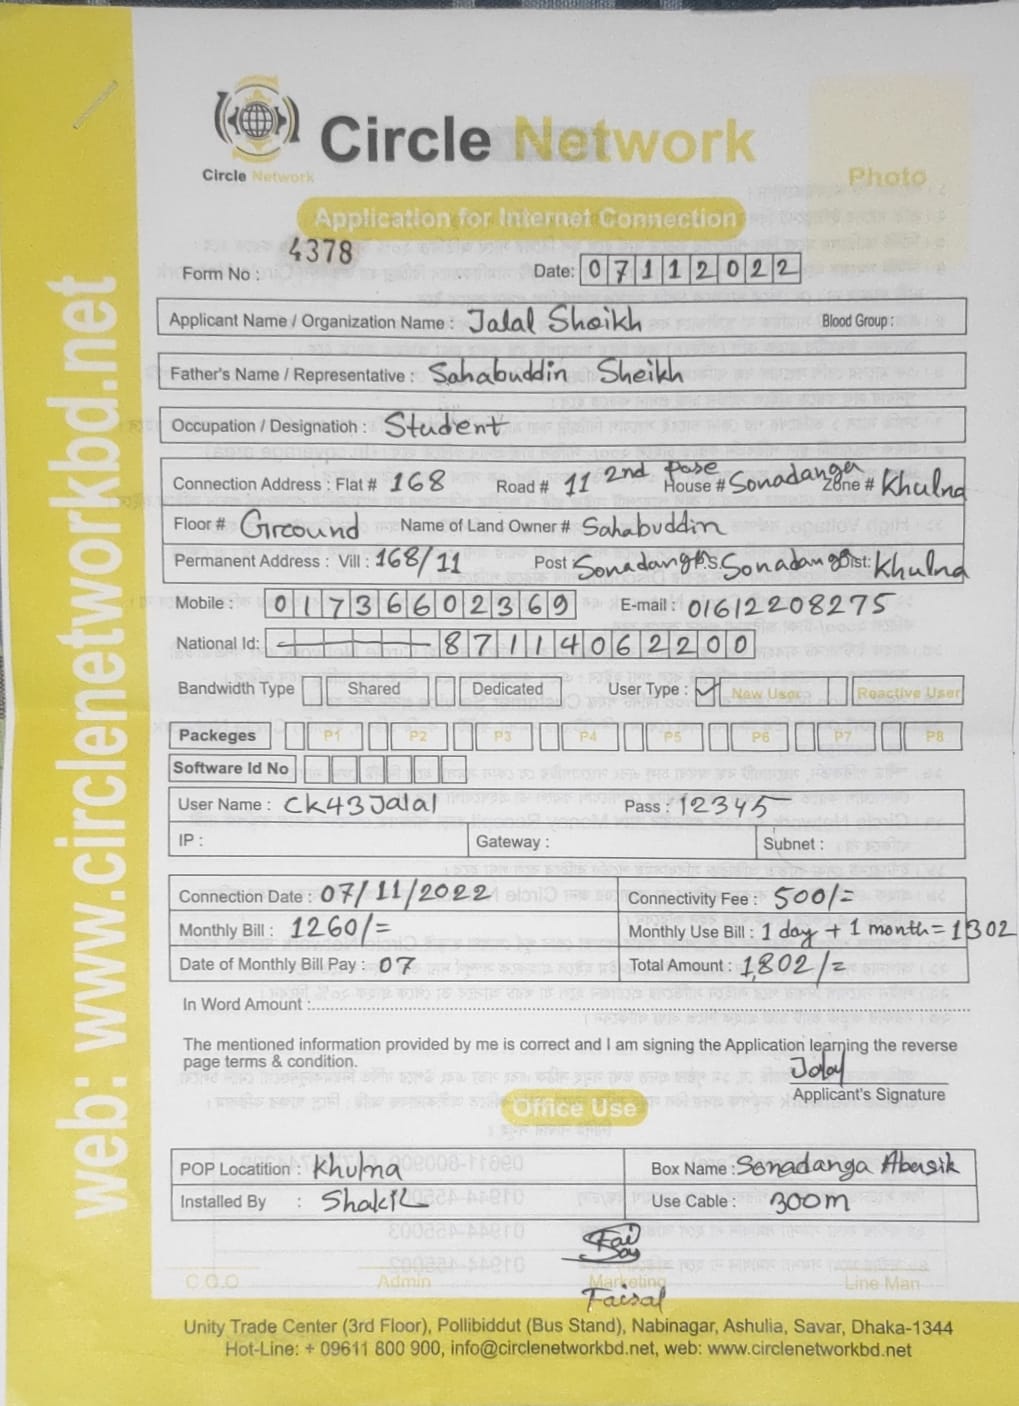 web: www.circlenetworkbd.net
Circle Network
Circle Network
Photo
Application for Internet Connection
Form No : 4378
Date: 07112022
Applicant Name / Organization Name : Jalal Sheikh Blood Group :
Father's Name / Representative : Sahabuddin Sheikh
Occupation / Designatioh : Student
Connection Address : Flat # 168 Road # 11 2nd pase House # Sonadanga Zone # Khulna
Floor # Groound Name of Land Owner # Sahabuddin
Permanent Address : Vill : 168/11 Post Sonadanga P.S. Sonadanga Dist: Khulna
Mobile : 01736602369 E-mail : 01612208275
National Id: 87114062200
Bandwidth Type Shared Dedicated User Type : ✓ New User Reactive User
Packeges P1 P2 P3 P4 P5 P6 P7 P8
Software Id No
User Name : CK43Jalal Pass : 12345
IP : Gateway : Subnet :
Connection Date : 07/11/2022 Connectivity Fee : 500/=
Monthly Bill : 1260/= Monthly Use Bill : 1 day + 1 month = 1302
Date of Monthly Bill Pay : 07 Total Amount : 1,802/=
In Word Amount :
The mentioned information provided by me is correct and I am signing the Application learning the reverse
page terms & condition.
Jalal
Applicant's Signature
Office Use
POP Locatition : Khulna Box Name : Sonadanga Abasik
Installed By : Shakil Use Cable : 300m
C.O.O Admin Marketing Line Man
Faisal
Unity Trade Center (3rd Floor), Pollibiddut (Bus Stand), Nabinagar, Ashulia, Savar, Dhaka-1344
Hot-Line: + 09611 800 900, info@circlenetworkbd.net, web: www.circlenetworkbd.net